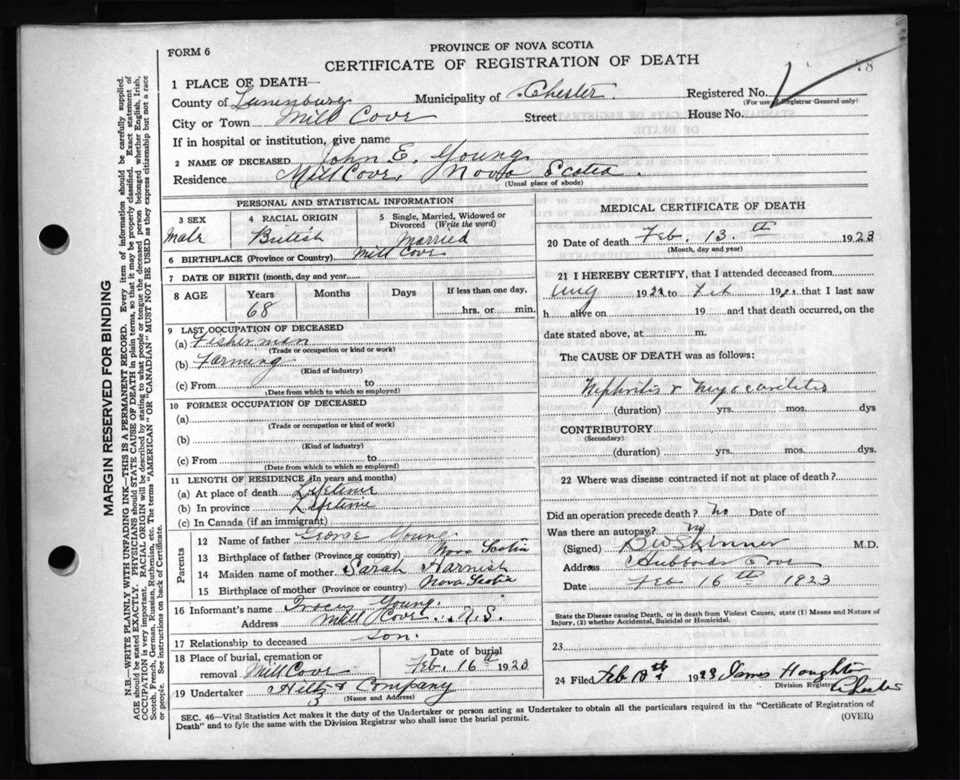 FORM 6
PROVINCE OF NOVA SCOTIA
CERTIFICATE OF REGISTRATION OF DEATH
78
1 PLACE OF DEATH—
County of Lunenburg Municipality of Chester Registered No.
(For use of Registrar General only)
City or Town Mill Cove Street House No.
If in hospital or institution, give name
2 NAME OF DECEASED John E. Young
Residence Mill Cove, Nova Scotia.
(Usual place of abode)
PERSONAL AND STATISTICAL INFORMATION
3 SEX 4 RACIAL ORIGIN 5 Single, Married, Widowed or Divorced (Write the word)
Male British Married
6 BIRTHPLACE (Province or Country) Mill Cove
7 DATE OF BIRTH (month, day and year)
8 AGE Years Months Days If less than one day,
68 hrs. or min.
9 LAST OCCUPATION OF DECEASED
(a) Fisherman
(Trade or occupation or kind or work)
(b) Farming
(Kind of industry)
(c) From to
(Date from which to which so employed)
10 FORMER OCCUPATION OF DECEASED
(a)
(Trade or occupation or kind of work)
(b)
(Kind of industry)
(c) From to
(Date from which to which so employed)
11 LENGTH OF RESIDENCE (In years and months)
(a) At place of death Lifetime
(b) In province Lifetime
(c) In Canada (if an immigrant)
Parents
12 Name of father George Young
13 Birthplace of father (Province or country) Nova Scotia
14 Maiden name of mother Sarah Harnish
15 Birthplace of mother (Province or country) Nova Scotia
16 Informant's name Young
Address Mill Cove, N.S.
17 Relationship to deceased son.
18 Place of burial, cremation or removal Mill Cove
Date of burial Feb. 16th 1923
19 Undertaker & Company
(Name and Address)
MEDICAL CERTIFICATE OF DEATH
20 Date of death Feb. 13.th 1923
(Month, day and year)
21 I HEREBY CERTIFY, that I attended deceased from
Aug 192 to Feb 192 that I last saw
h alive on 19 and that death occurred, on the
date stated above, at m.
The CAUSE OF DEATH was as follows:
Nephritis & Myocarditis
(duration) yrs. mos. dys
CONTRIBUTORY
(Secondary)
(duration) yrs. mos. dys.
22 Where was disease contracted if not at place of death?
Did an operation precede death? No Date of
Was there an autopsy? No
(Signed) Skinner M.D.
Address Hubbards Cove
Date Feb 16th 1923
State the Disease causing Death, or in death from Violent Causes, state (1) Means and Nature of
Injury, (2) whether Accidental, Suicidal or Homicidal.
23
24 Filed Feb 1923 James Houghton
Division Registrar
Chester
SEC. 46—Vital Statistics Act makes it the duty of the Undertaker or person acting as Undertaker to obtain all the particulars required in the "Certificate of Registration of
Death" and to fyle the same with the Division Registrar who shall issue the burial permit.
(OVER)
MARGIN RESERVED FOR BINDING
N.B.—WRITE PLAINLY WITH UNFADING INK—THIS IS A PERMANENT RECORD. Every item of information should be carefully supplied.
AGE should be stated EXACTLY. PHYSICIANS should STATE CAUSE OF DEATH in plain terms, so that it may be properly classified. Exact statement of
OCCUPATION is very important. RACIAL ORIGIN will be described by stating to what people or tongue the deceased person belonged whether English, Irish,
Scotch, French, German, Russian, Ruthenian, etc. The terms "AMERICAN" OR "CANADIAN" MUST NOT BE USED as they express citizenship but not a race
or people. See instructions on back of Certificate.